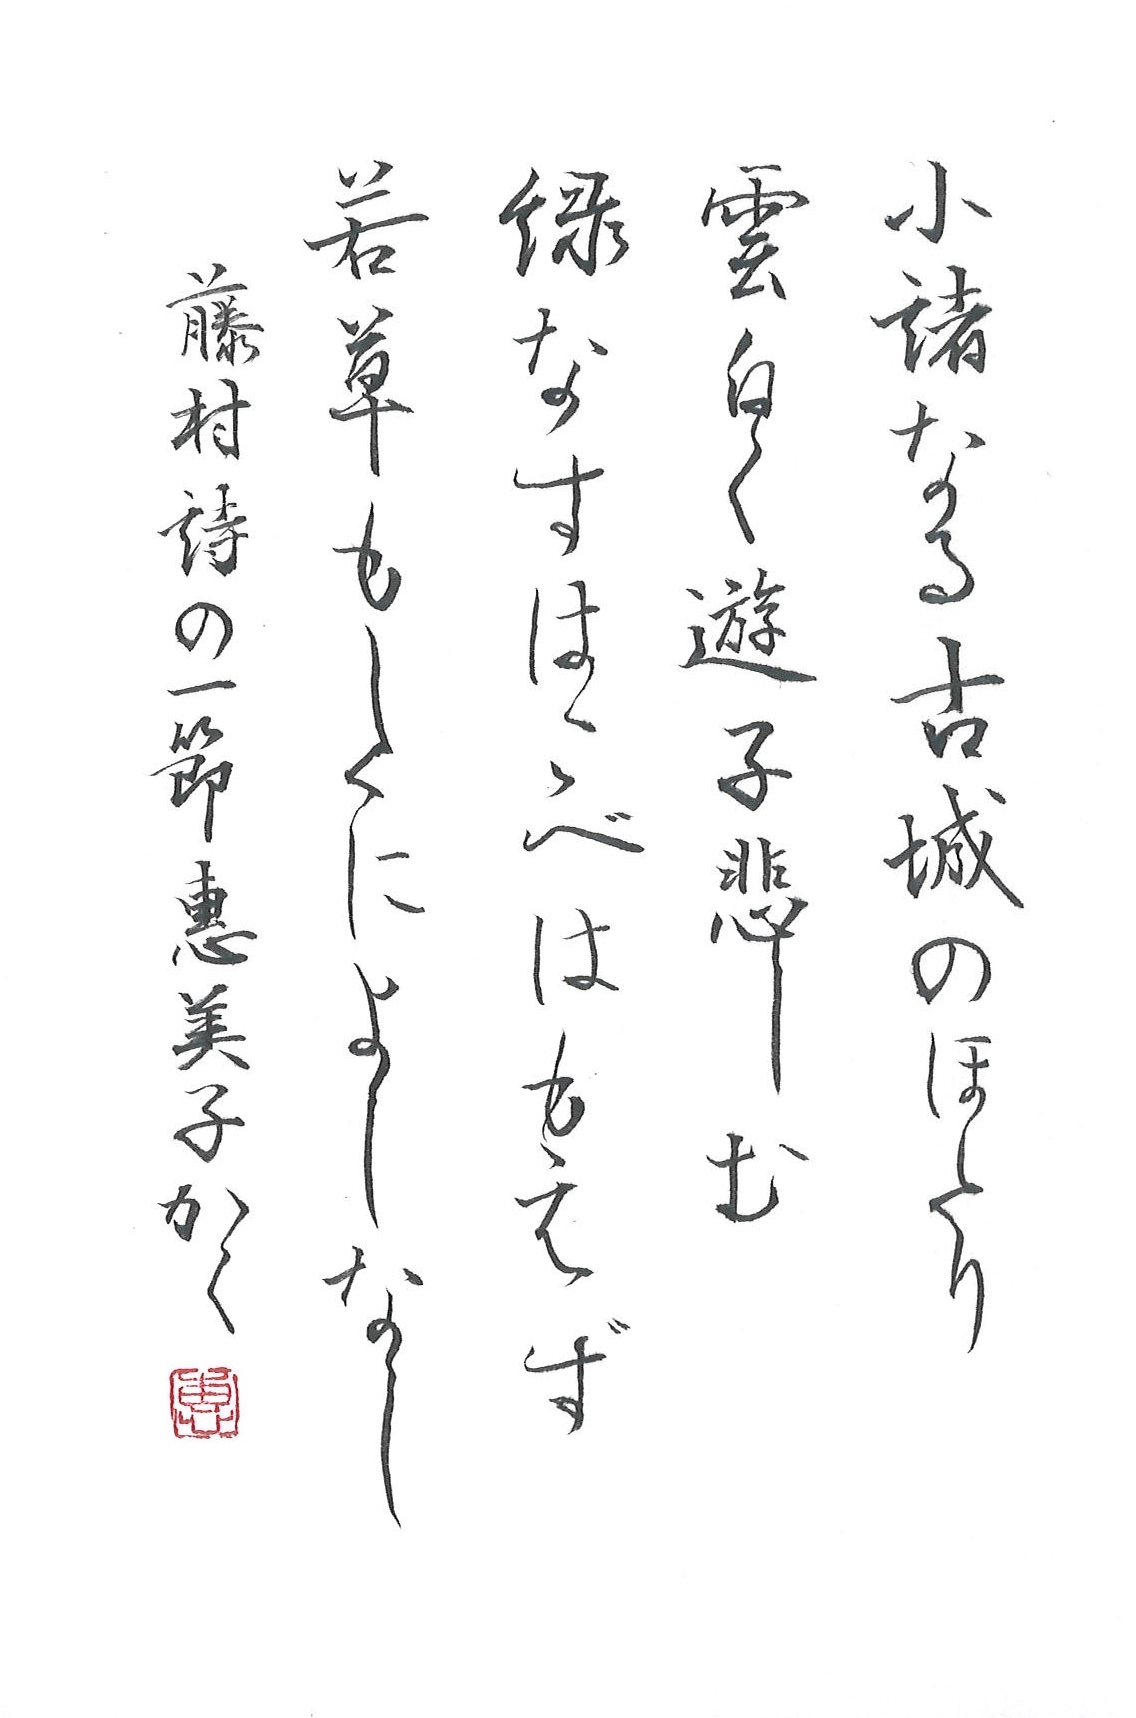 小諸なる古城のほとり
雲白く遊子悲しむ
緑なすはこべはもえず
若草もしくによしなし
藤村詩の一節惠美子かく
惠